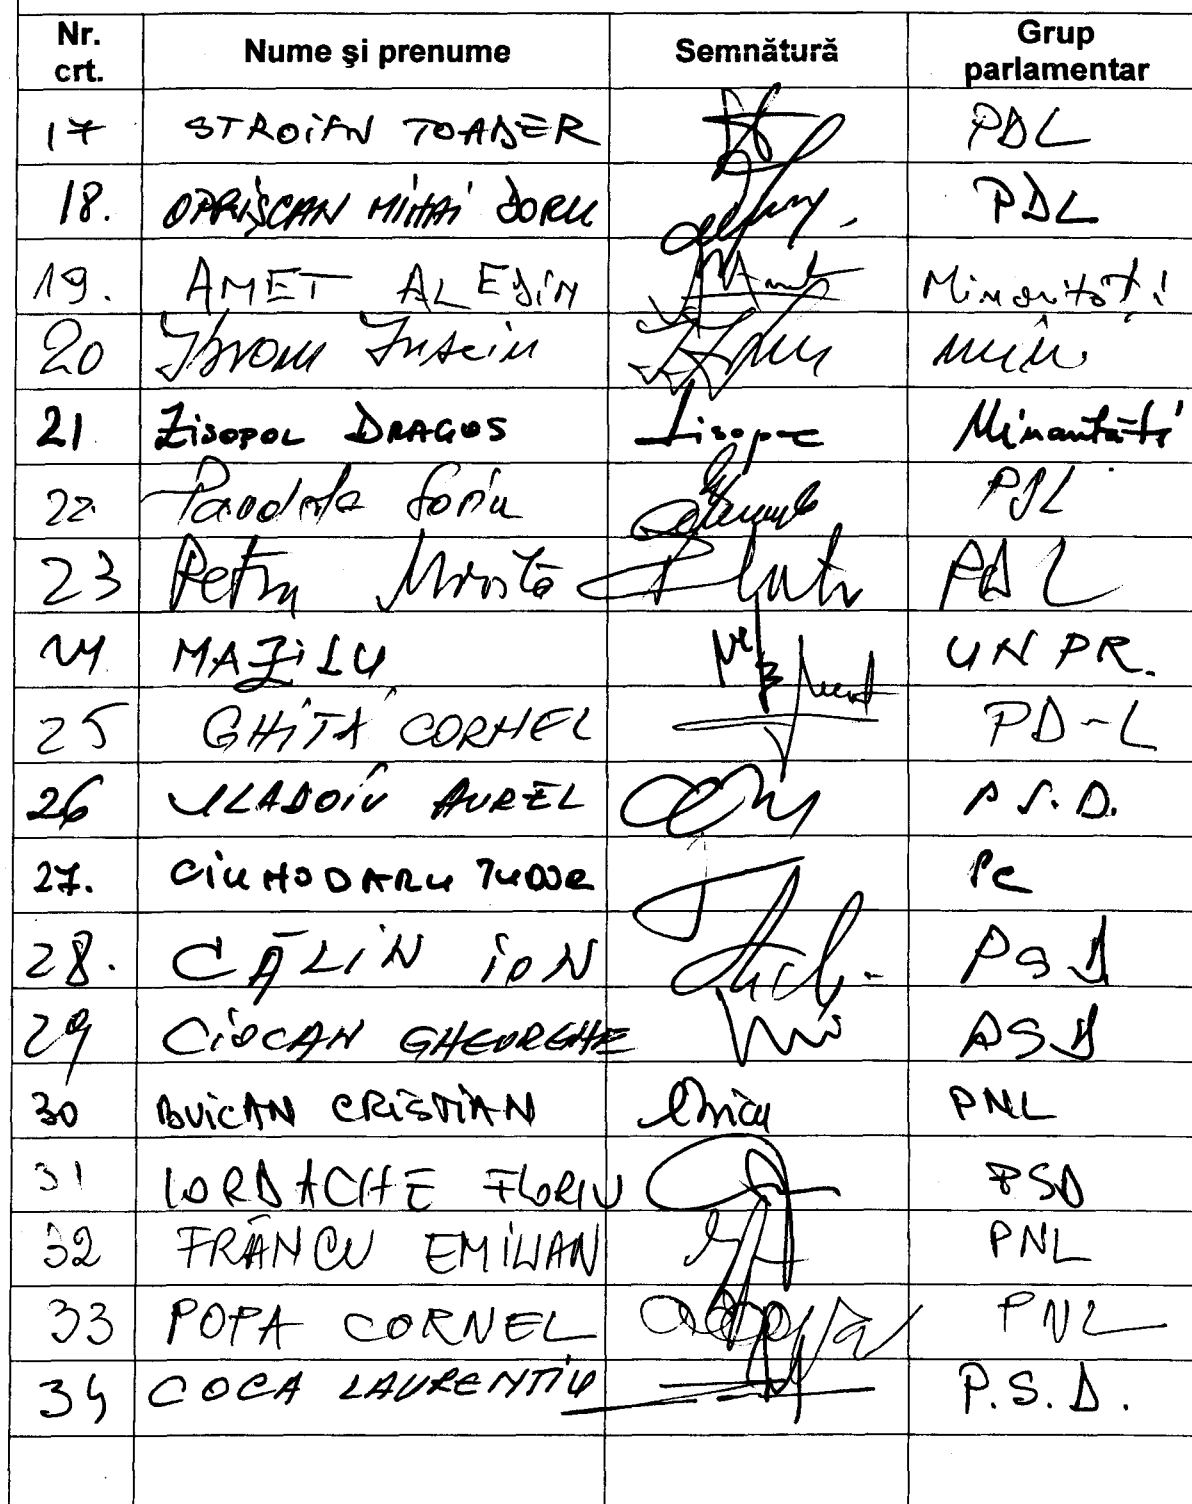 Nr. crt. Nume şi prenume Semnătură Grup parlamentar
17 STROIAN TOADER PDL
18. OPRIŞCAN MIHAI DORU PDL
19. AMET ALEDIN Minorităţi
20 Ibram Iusein min
21 Zisopol DRAGOS Zisopol Minorităţi
22. Sorin PDL
23 Petru Mirela PDL
24 MAZILU UNPR.
25 GHIŢĂ CORNEL PD-L
26 VLĂDOIU AUREL P.S.D.
27. CIUHODARU TUDOR PC
28. CĂLIN ION PSD
29 CIOCAN GHEORGHE PSD
30 BUICAN CRISTIAN PNL
31 IORDACHE FLORIN PSD
32 FRÂNCU EMILIAN PNL
33 POPA CORNEL PNL
34 COCA LAURENTIU P.S.D.